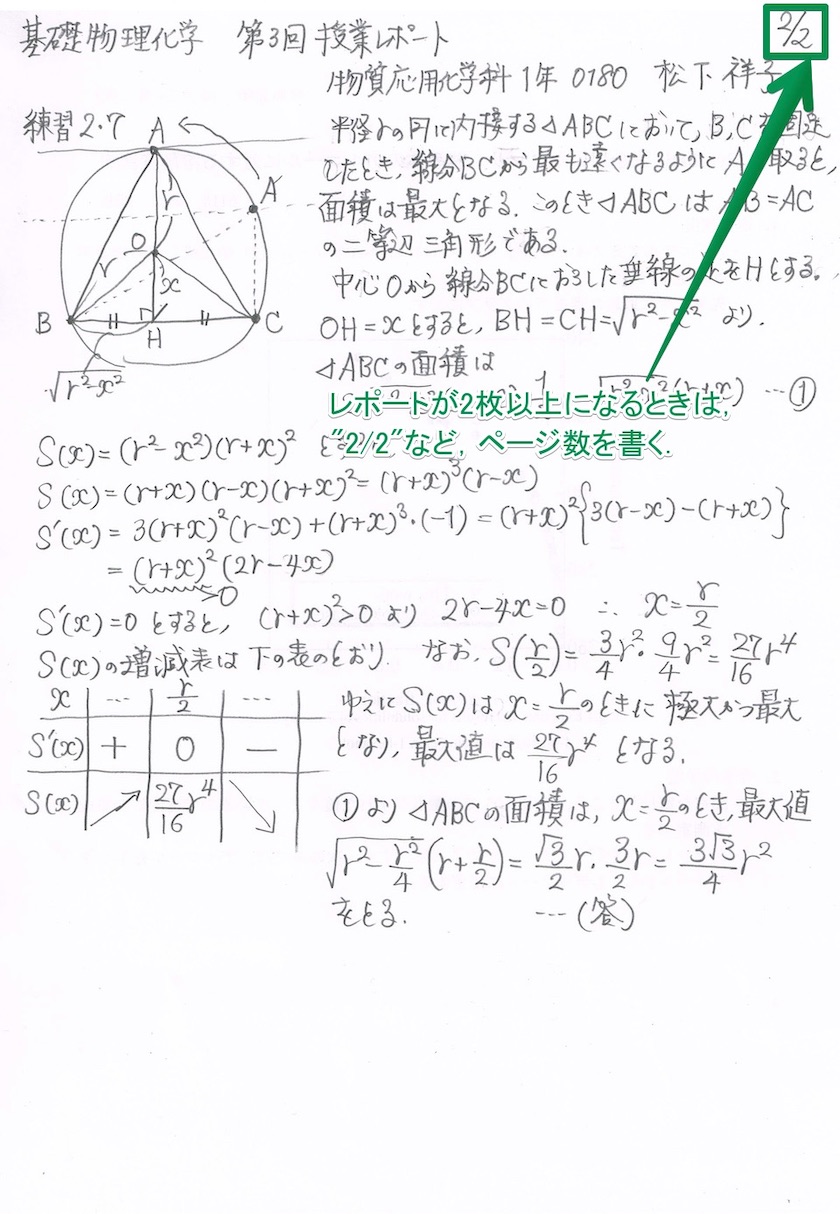 基礎物理化学 第3回 授業レポート
2/2
物質応用化学科 1年 0180 松下 祥子
練習2・7
半径rの円に内接する△ABCにおいて, B, Cを固定
したとき, 線分BCから最も遠くなるようにA 取ると,
面積は最大となる. このとき△ABCは AB=AC
の二等辺三角形である.
中心Oから線分BCにおろした垂線の足をHとする.
OH=xとすると, BH=CH=√(r²-x²) より.
△ABCの面積は
√(r²-x²)(r+x) …①
A
A'
r
O
r
x
B
H
C
√(r²-x²)
レポートが2枚以上になるときは,
"2/2"など, ページ数を書く.
S(x)=(r²-x²)(r+x)²
S(x)=(r+x)(r-x)(r+x)²=(r+x)³(r-x)
S'(x)=3(r+x)²(r-x)+(r+x)³・(-1)=(r+x)²{3(r-x)-(r+x)}
=(r+x)²(2r-4x)
>0
S'(x)=0 とすると, (r+x)²>0 より 2r-4x=0 ∴ x=r/2
S(x)の増減表は下の表のとおり. なお, S(r/2)=3/4r²・9/4r²=27/16r⁴
x … r/2 …
S'(x) + 0 −
S(x) ↗ 27/16r⁴ ↘
ゆえにS(x)は x=r/2のときに極大かつ最大
となり, 最大値は 27/16r⁴ となる.
①より△ABCの面積は, x=r/2のとき, 最大値
√(r²-r²/4)(r+r/2)=√3/2r・3/2r=3√3/4r²
をとる. …(答)